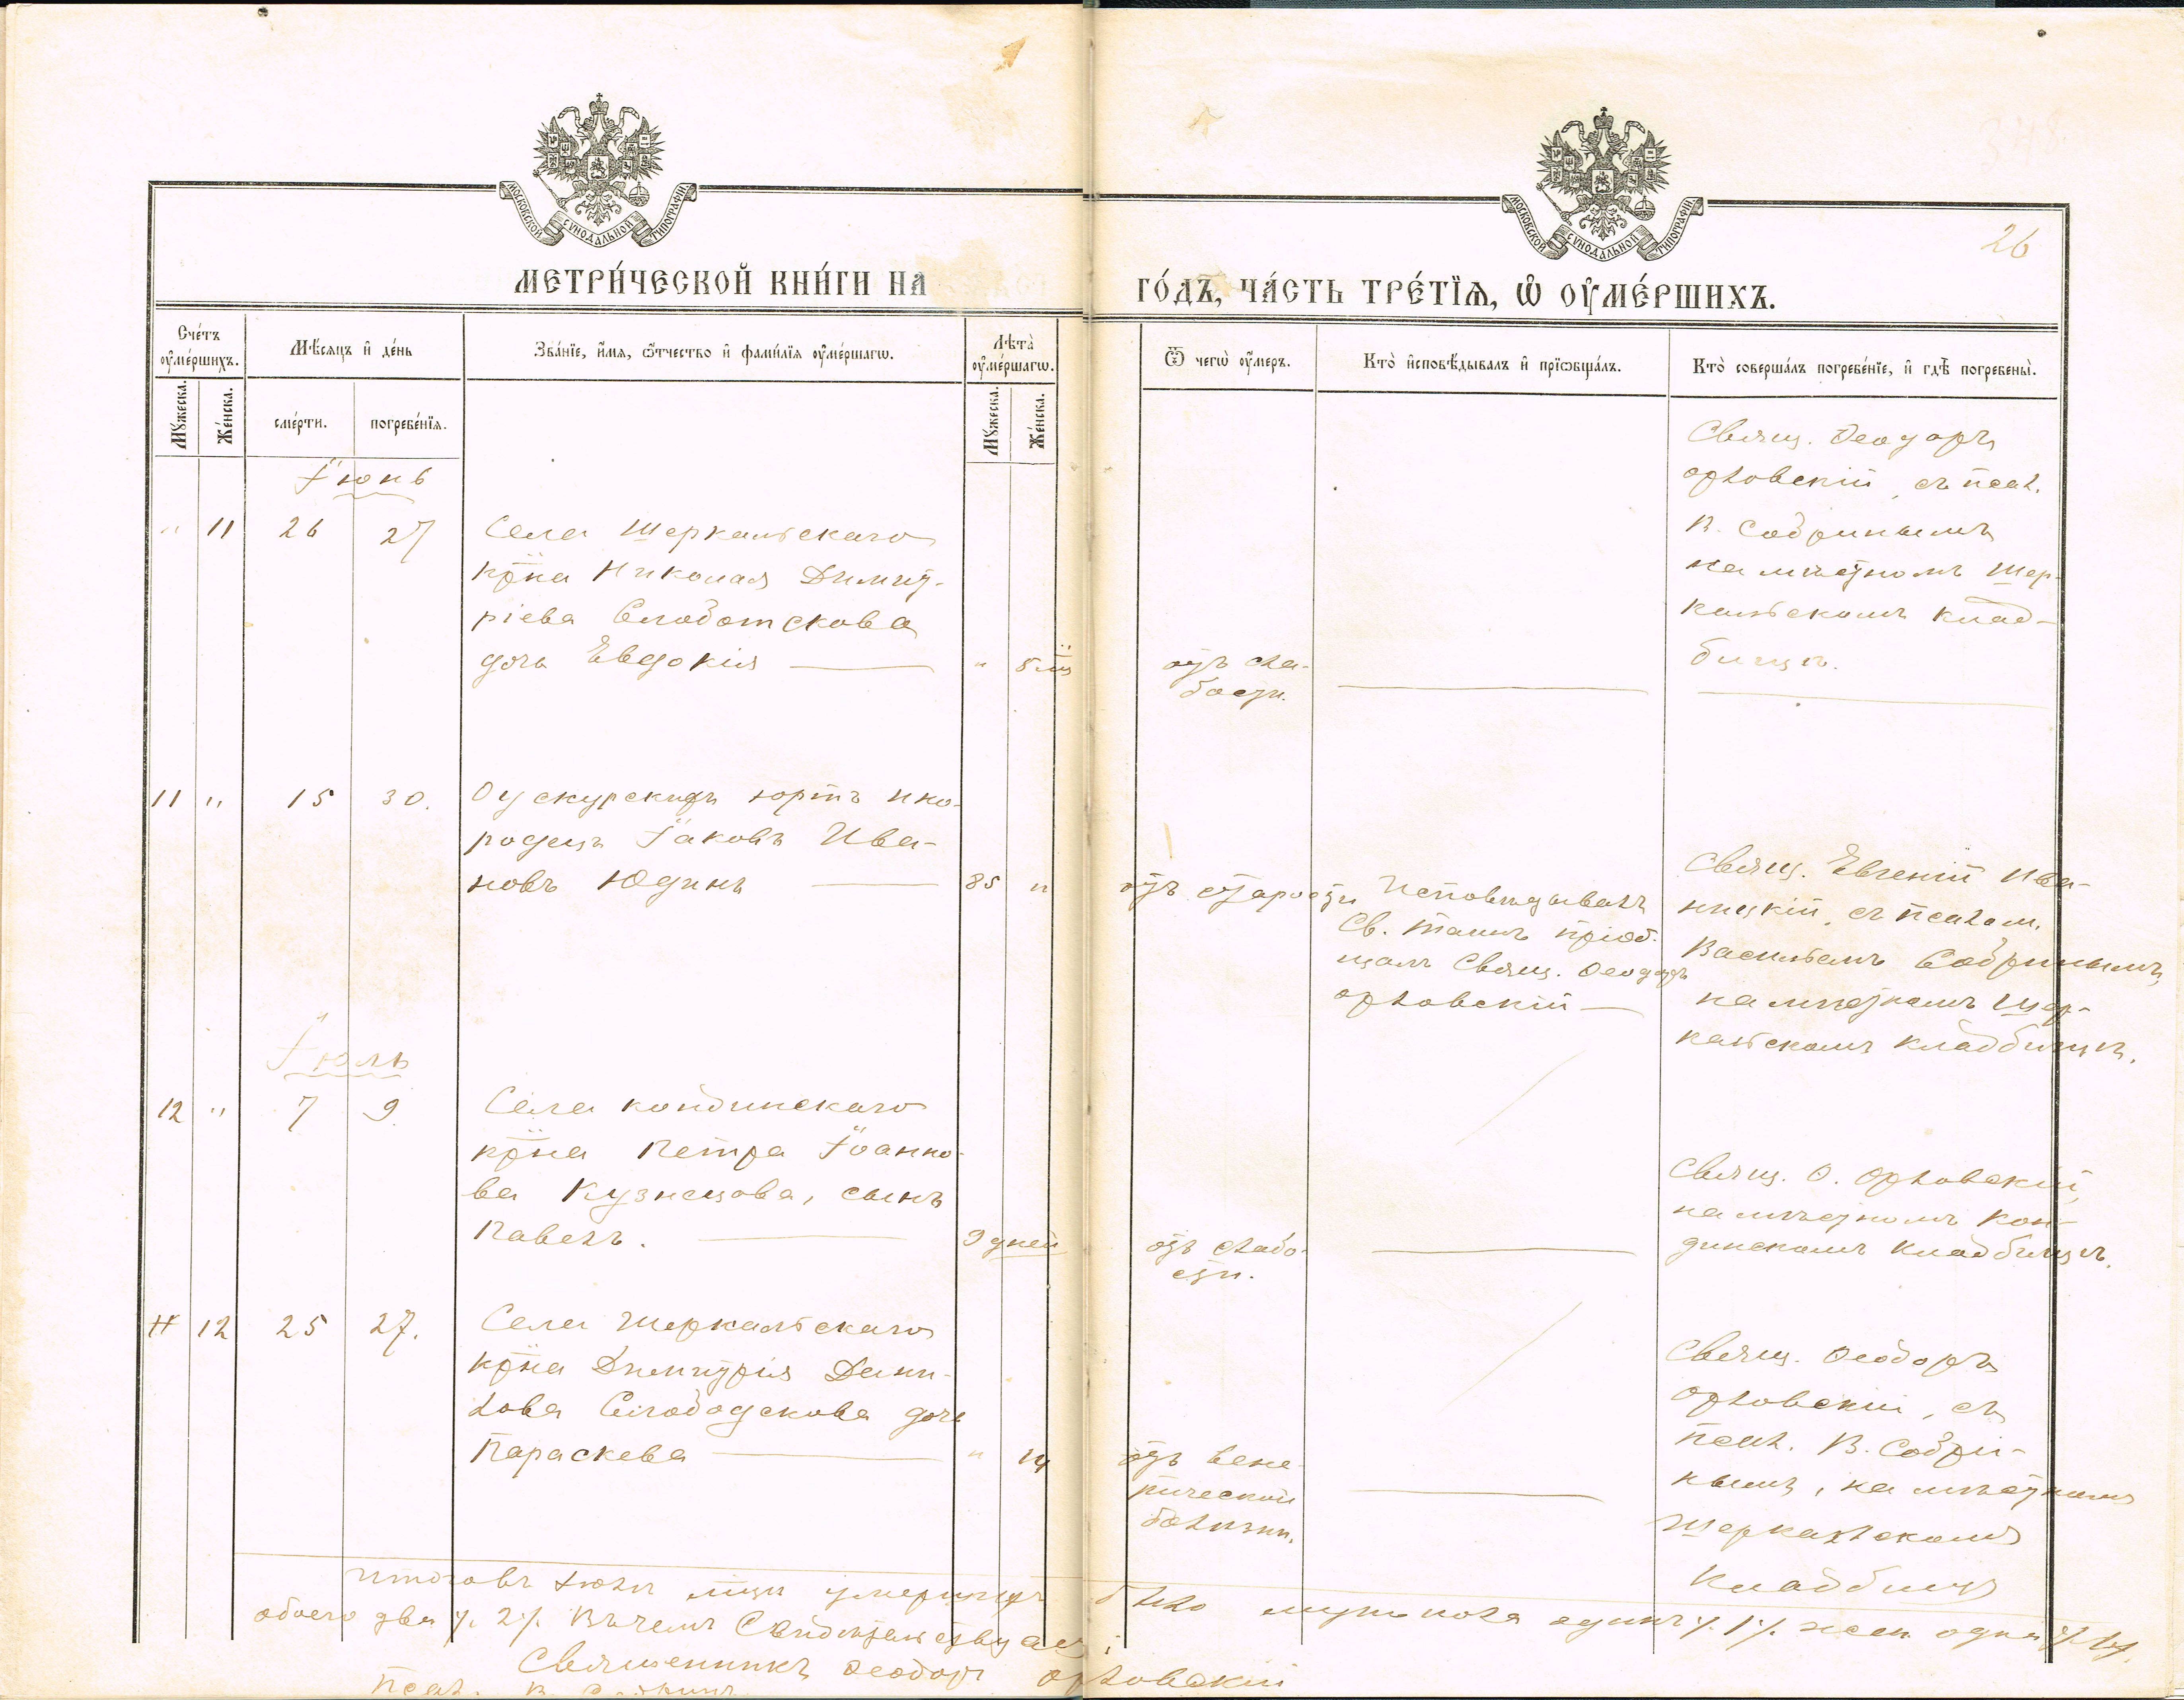 МОСКОВСКОЙ СУНОДАЛЬНОЙ ТИПОГРАФІИ
МОСКОВСКОЙ СУНОДАЛЬНОЙ ТИПОГРАФІИ
26
МЕТРИ́ЧЕСКОЙ КНИ́ГИ НА
ГО́ДЪ, ЧА́СТЬ ТРЕ́ТІѦ, Ѡ ОУ҆МЕ́РШИХЪ.
Сче́тъ оу҆ме́ршихъ.
Мꙋ́жеска.
Же́нска.
Мѣ́сяцъ и҆ де́нь
сме́рти.
погребе́нїя.
Зва́нїе, и҆́мя, ѻ҆́тчество и҆ фами́лїя оу҆ме́ршагѡ.
Лѣ́та оу҆ме́ршагѡ.
Мꙋ́жеска.
Же́нска.
Ѿ чегѡ̀ оу҆́меръ.
Кто̀ и҆сповѣ́дывалъ и҆ прїѡбща́лъ.
Кто̀ соверша́лъ погребе́нїе, и҆ гдѣ̀ погребены̀.
Іюнь
" 11 26 27
Села Шеркальскаго
кр͠на Николая Димит-
ріева Слободскова
дочь Евдокія —
" 5 мц
отъ сла-
бости.
Свящ. Ѳеодоръ
Орловскій, съ псал.
В. Собринымъ
на мѣстномъ Шер-
кальскомъ клад-
бищѣ.
11 " 15 30.
юртъ ино-
родецъ Іаковъ Ива-
новъ Юдинъ —
85 "
отъ старости
Исповѣдывалъ
Св. Таинъ пріоб-
щалъ Свящ. Ѳеодоръ
Орловскій —
Свящ. Евгеній Ива-
ницкій, съ псалом.
Васильемъ Собринымъ,
на мѣстномъ Шер-
кальскомъ кладбищѣ.
Іюль
12 " 7 9.
Села Кондинскаго
кр͠на Петра Іоанно-
ва Кузнецова, сынъ
Павелъ. —
9 дней
отъ слабо-
сти.
Свящ. Ѳ. Орловскій,
на мѣстномъ Кон-
динскомъ кладбищѣ.
" 12 25 27.
Села Шеркальскаго
кр͠на Димитрія Дани-
лова Слободскова дочь
Параскева —
" 14
отъ вене-
рической
болѣзни.
Свящ. Ѳеодоръ
Орловскій, съ
псал. В. Собри-
нымъ, на мѣстномъ
Шеркальскомъ
кладбищѣ
Итого въ Іюлѣ м͠цѣ умершихъ было муж. пола одинъ /. 1 /. жен. одна /. 1 /.
обоего два /. 2 /. Въ чемъ Свидѣтельствуемъ:
Священникъ Ѳеодоръ Орловскій
Псал. В. Собринъ